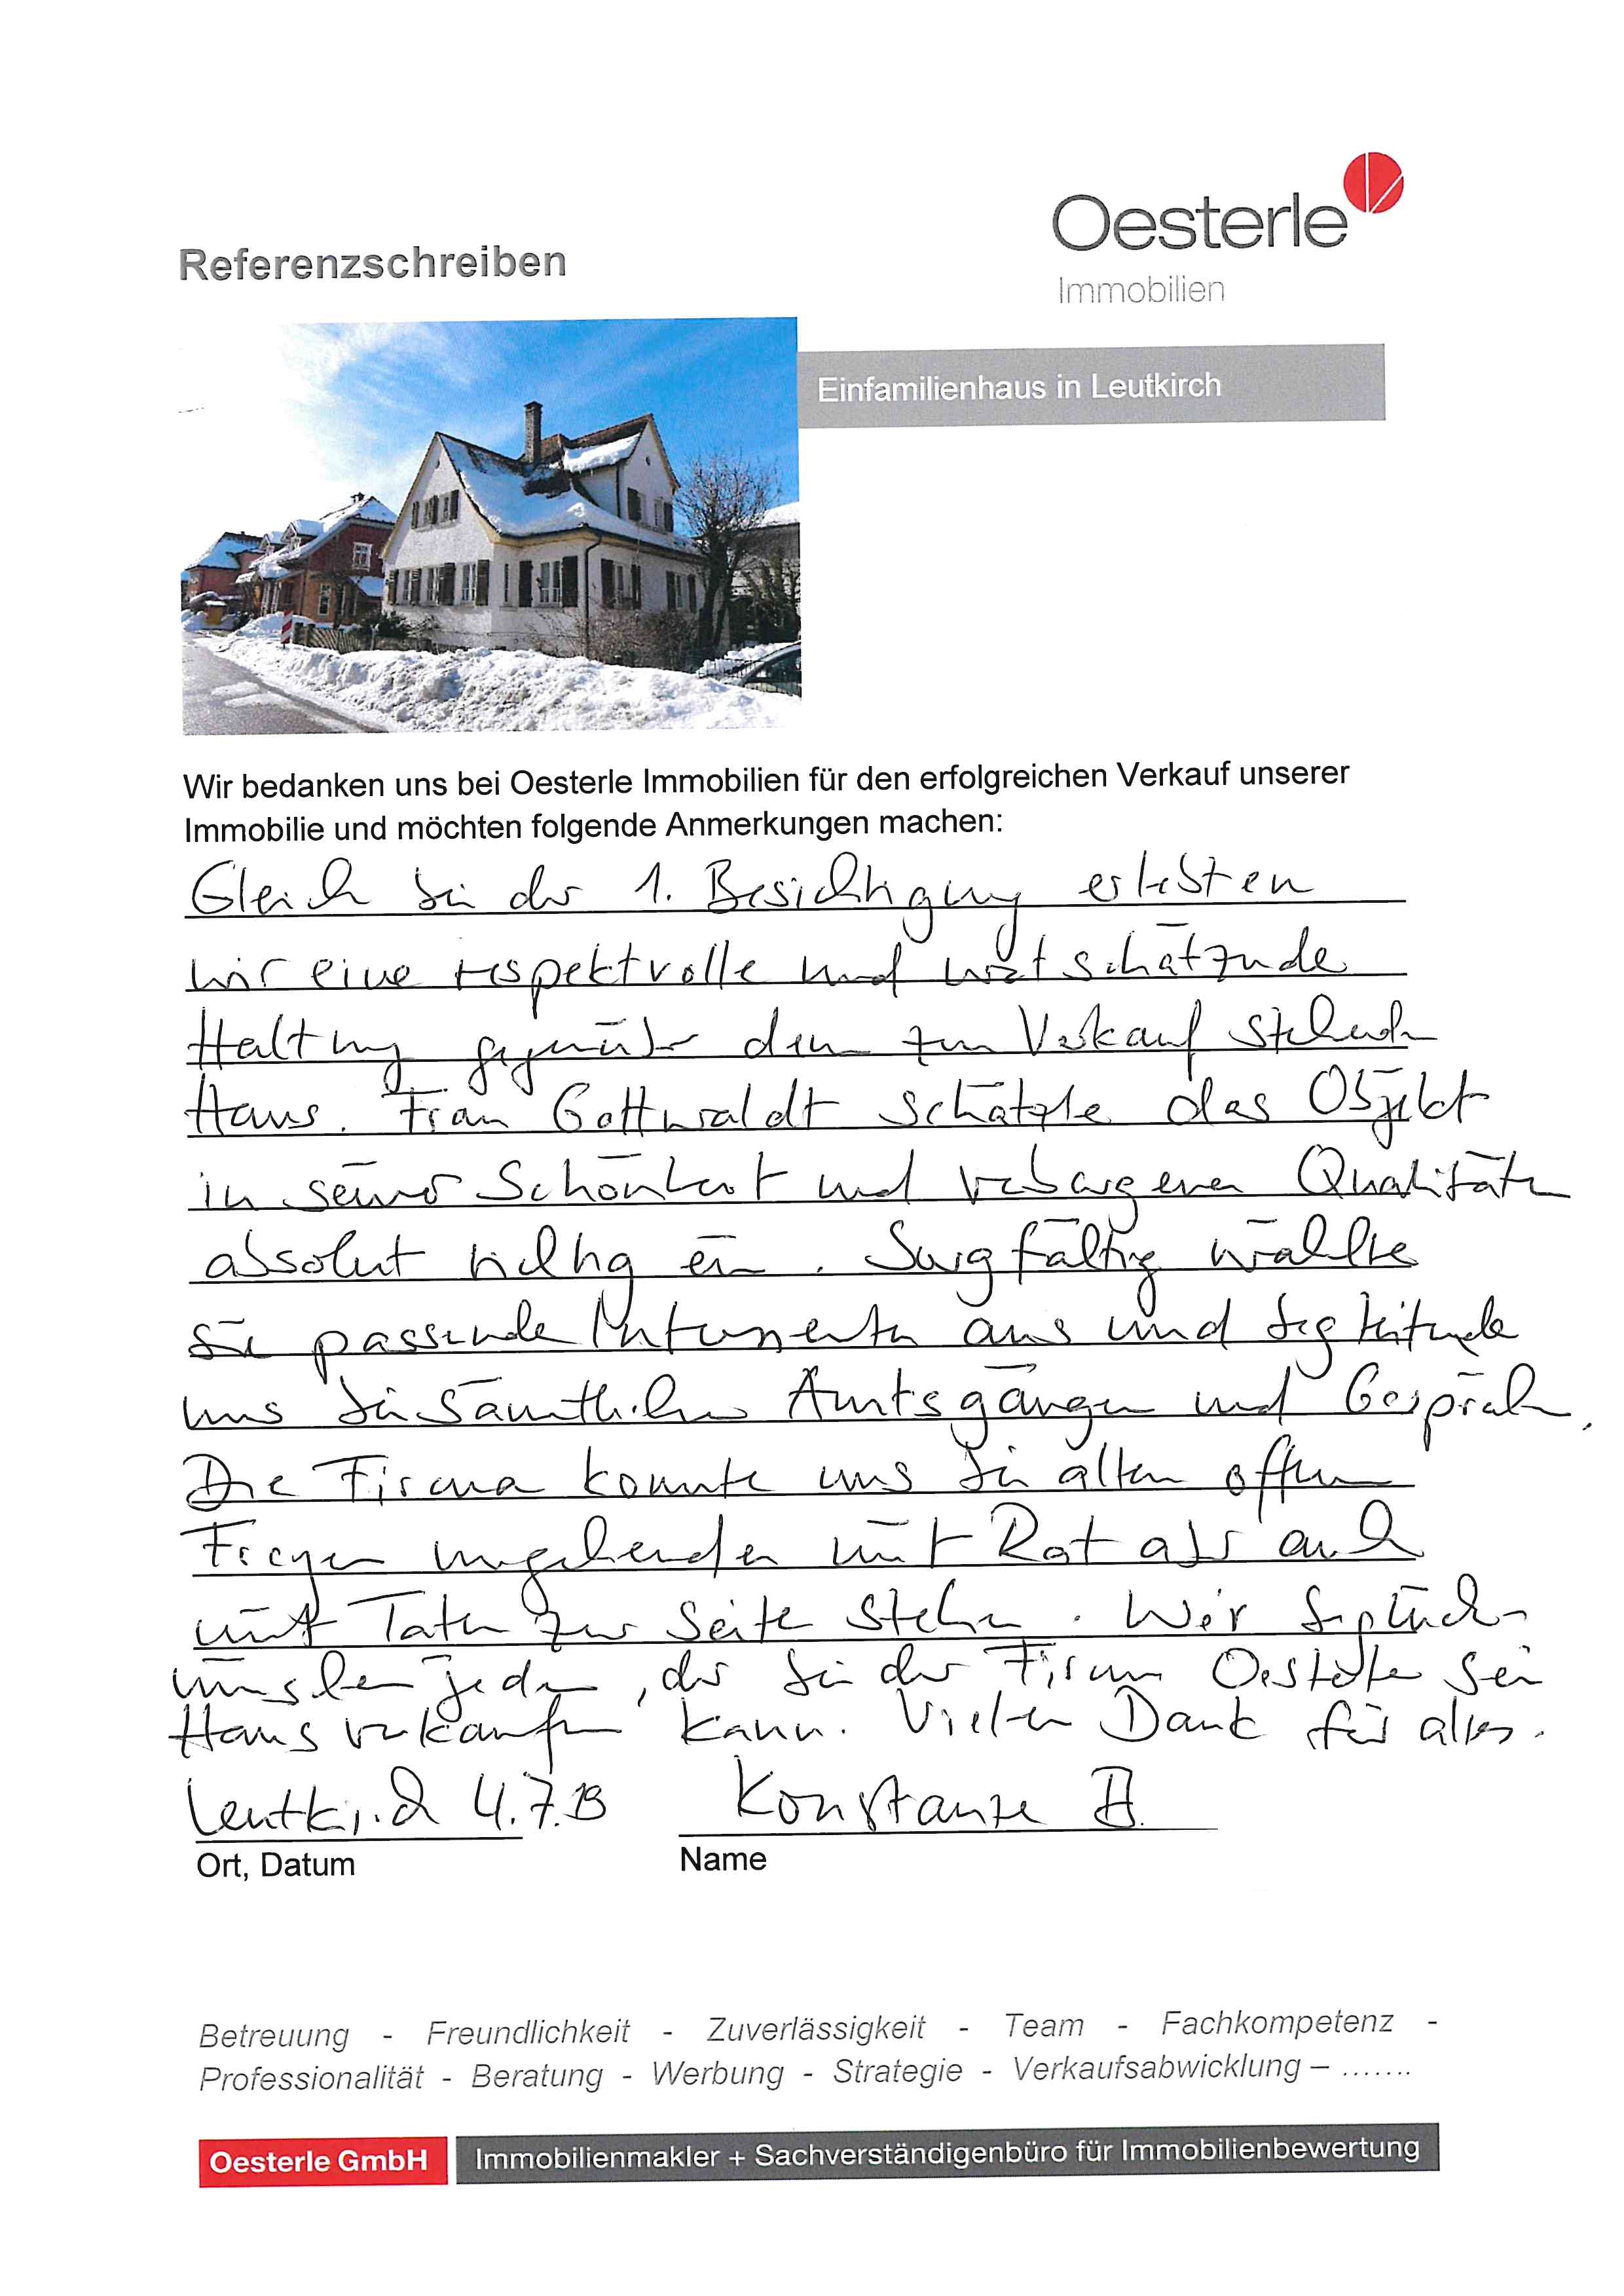 Oesterle
Immobilien
Referenzschreiben
Einfamilienhaus in Leutkirch
Wir bedanken uns bei Oesterle Immobilien für den erfolgreichen Verkauf unserer
Immobilie und möchten folgende Anmerkungen machen:
Gleich bei der 1. Besichtigung erlebten
wir eine respektvolle und wertschätzende
Haltung gegenüber dem zum Verkauf stehenden
Haus. Frau Gottwaldt schätzte das Objekt
in seiner Schönheit und verborgenen Qualitäten
absolut richtig ein. Sorgfältig wählte
sie passende Interessenten aus und begleitende
uns bei sämtlichen Amtsgängen und Gespräche.
Die Firma konnte uns bei allen offenen
Fragen umgehenden mit Rat als auch
mit Taten zur Seite stehen. Wir beglück-
wünschen jeden, der bei der Firma Oesterle sein
Haus verkaufen kann. Vielen Dank für alles.
Leutkirch 4.7.19 Konstanze B.
Ort, Datum Name
Betreuung - Freundlichkeit - Zuverlässigkeit - Team - Fachkompetenz -
Professionalität - Beratung - Werbung - Strategie - Verkaufsabwicklung – .......
Oesterle GmbH Immobilienmakler + Sachverständigenbüro für Immobilienbewertung